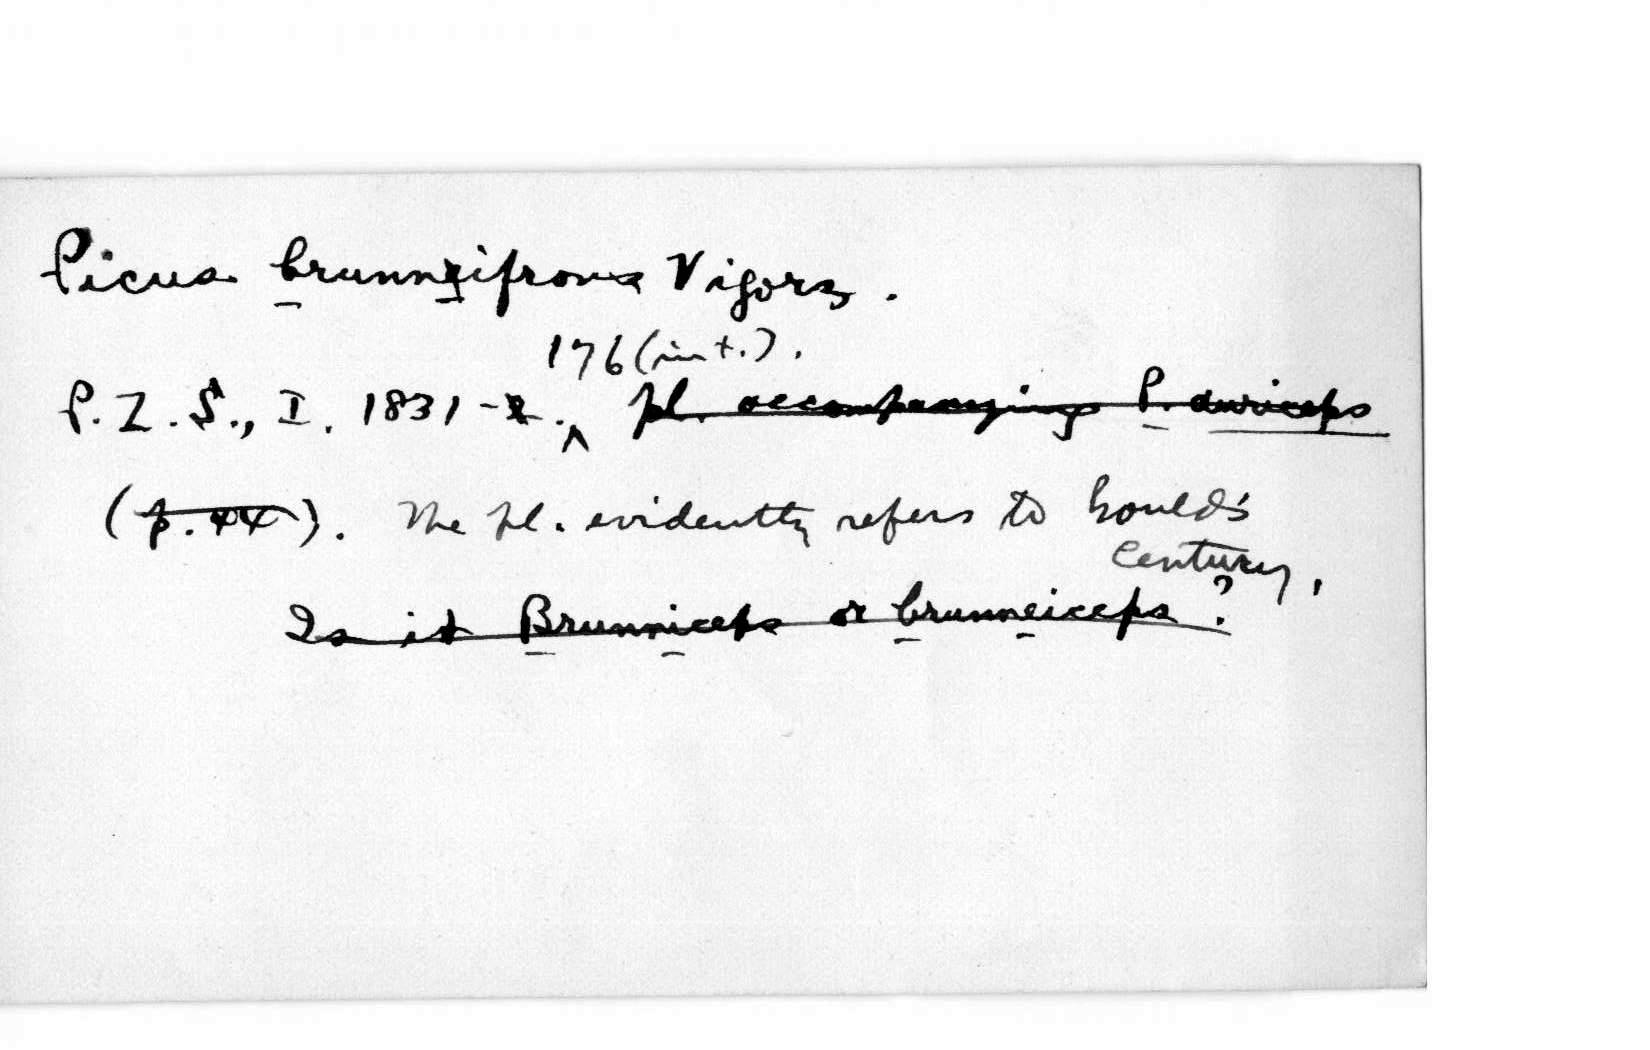 Picus brunneifrons Vigors.
176 (int.).
P. Z. S., I. 1831-2. ^ pl. accompanying P. auriceps
(p. 44). The pl. evidently refers to Gould's
Century.
Is it Brunniceps or brunneiceps?